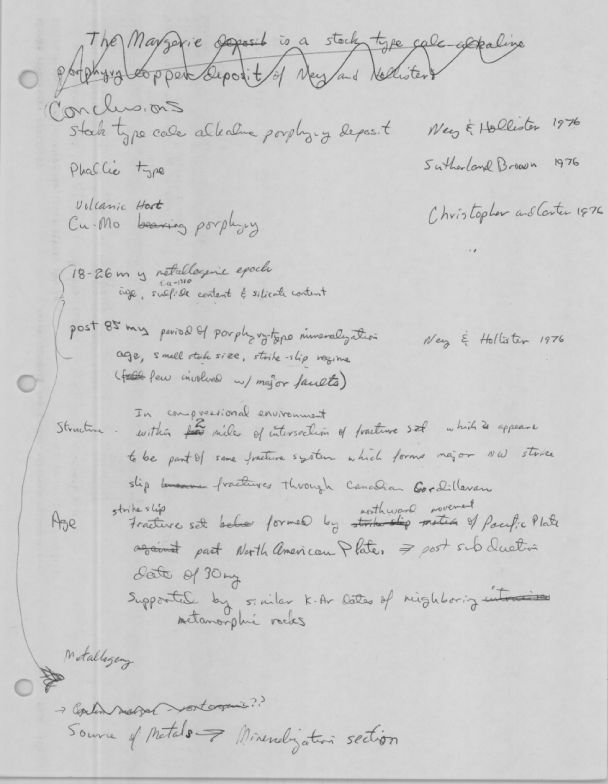 The Margerie deposit is a stock type calc-alkaline
porphyry copper deposit of Ney and Hollister
Conclusions
Stock type calc alkaline porphyry deposit Ney & Hollister 1976
Phallic type Sutherland Brown 1976
Volcanic Host
Cu-Mo bearing porphyry Christopher and Carter 1976
18-26 m y metallogenic epoch
Cu-Mo
age, sulfide content & silicate content
post 85 my period of porphyry-type mineralization Ney & Hollister 1976
age, small stock size, strike-slip regime
(few involved w/ major faults)
In compressional environment
Structure - within 2 miles of intersection of fracture set which appears
to be part of same fracture system which forms major NW strike
slip fractures through Canadian Cordilleran
strike slip northward movement
Age fracture set formed by strike slip motion of Pacific Plate
against past North American Plate, ⇒ post subduction
date of 30 my
Supported by similar K-Ar dates of neighboring intrusive
metamorphic rocks
Metallogeny
→ ??
Source of Metals → Mineralization section